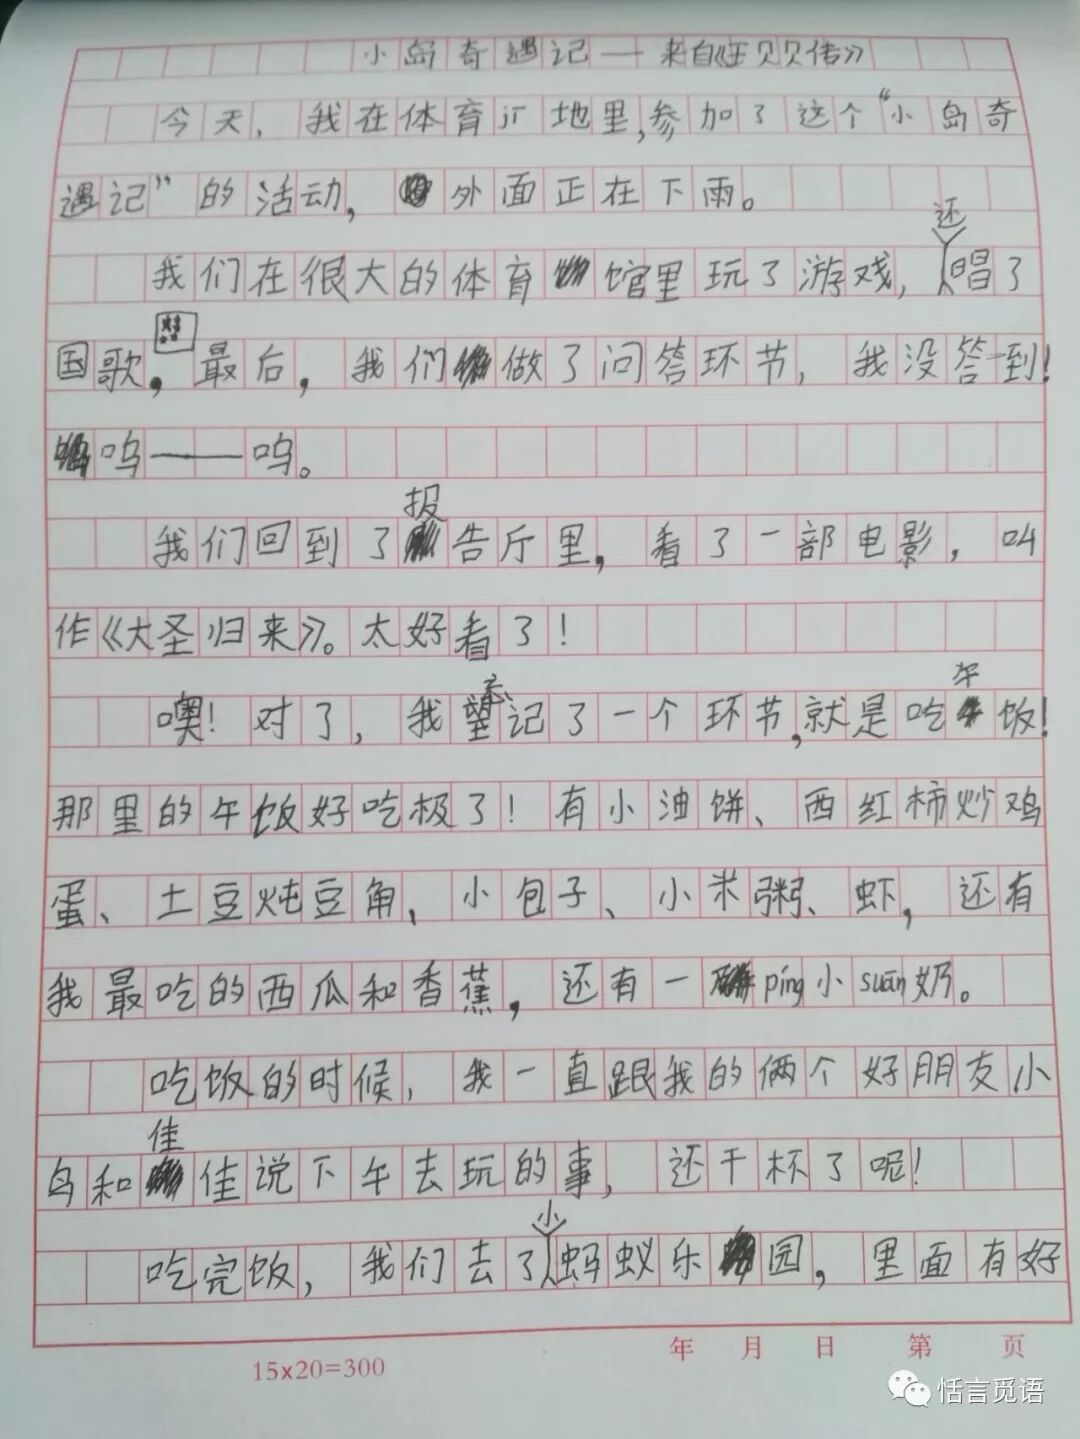 小岛奇遇记——来自《王贝贝传》
今天，我在体育jī地里，参加了这个“小岛奇
遇记”的活动，外面正在下雨。
我们在很大的体育馆里玩了游戏，还唱了
国歌，最后，我们做了问答环节，我没答到！
呜——呜。
我们回到了报告厅里，看了一部电影，叫
作《大圣归来》。太好看了！
噢！对了，我忘记了一个环节，就是吃午饭！
那里的午饭好吃极了！有小油饼、西红柿炒鸡
蛋、土豆炖豆角、小包子、小米粥、虾，还有
我最吃的西瓜和香蕉，还有一píng小suān奶。
吃饭的时候，我一直跟我的俩个好朋友小
鸟和佳佳说下午去玩的事，还干杯了呢！
吃完饭，我们去了小蚂蚁乐园，里面有好
15x20=300
年 月 日 第 页
恬言觅语